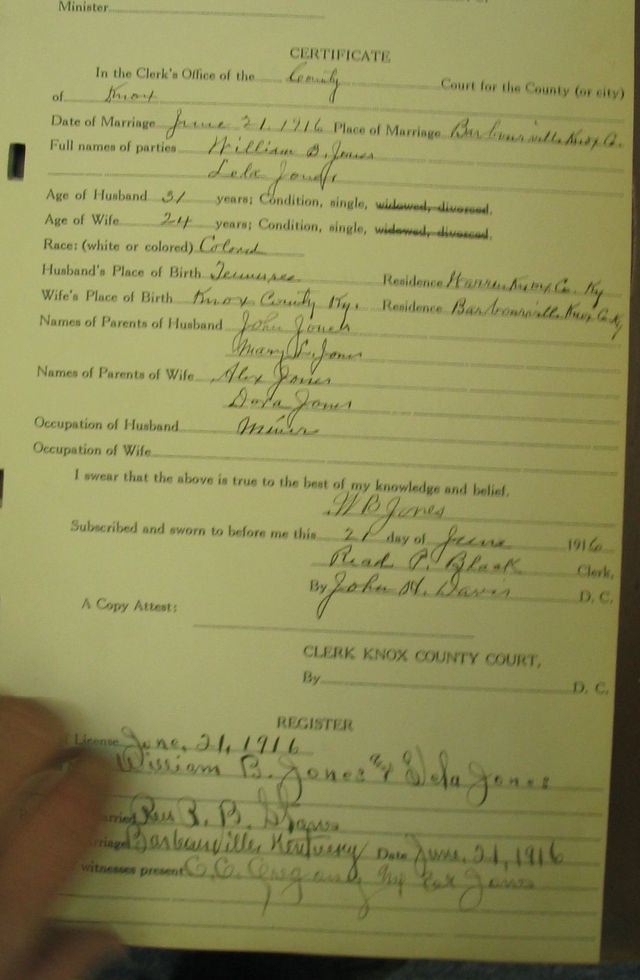 Minister
CERTIFICATE
In the Clerk's Office of the County Court for the County (or city)
of Knox
Date of Marriage June 21, 1916 Place of Marriage Barbourville, Knox Co.
Full names of parties William B. Jones
Lela Jones
Age of Husband 31 years; Condition, single, widowed, divorced.
Age of Wife 24 years; Condition, single, widowed, divorced.
Race: (white or colored) Colored
Husband's Place of Birth Tennessee Residence Warren, Knox Co. Ky
Wife's Place of Birth Knox County Ky. Residence Barbourville, Knox Co. Ky
Names of Parents of Husband John Jones
Mary Jones
Names of Parents of Wife Alex Jones
Dora Jones
Occupation of Husband Miner
Occupation of Wife
I swear that the above is true to the best of my knowledge and belief.
W B Jones
Subscribed and sworn to before me this 21 day of June 1916
Read P. Black Clerk,
By John H. Davis D. C.
A Copy Attest:
CLERK KNOX COUNTY COURT,
By D. C.
REGISTER
License June, 21, 1916
William B. Jones & Lela Jones
Rev R. B.
Barbourville, Kentucky Date June, 21, 1916
witnesses present Jones